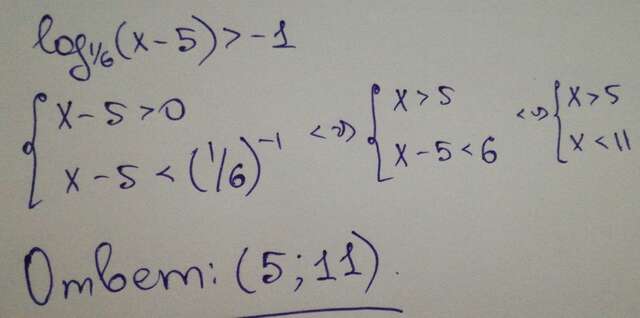 log₁/₆(x-5)>-1
{ x-5>0 <=> { x>5 <=> { x>5
x-5<(1/6)⁻¹ x-5<6 x<11
Ответ: (5;11).